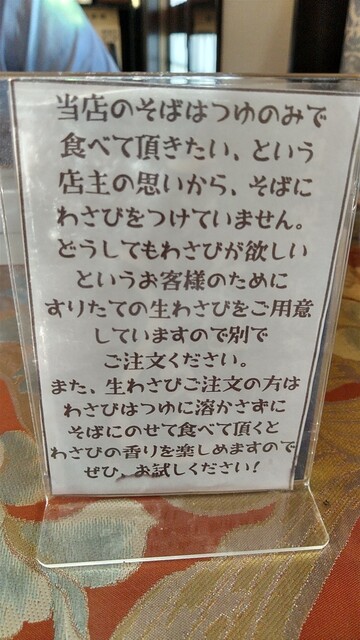 当店のそばはつゆのみで
食べて頂きたい、という
店主の思いから、そばに
わさびをつけていません。
どうしてもわさびが欲しい
というお客様のために
すりたての生わさびをご用意
していますので別で
ご注文ください。
また、生わさびご注文の方は
わさびはつゆに溶かさずに
そばにのせて食べて頂くと
わさびの香りを楽しめますので
ぜひ、お試しください!